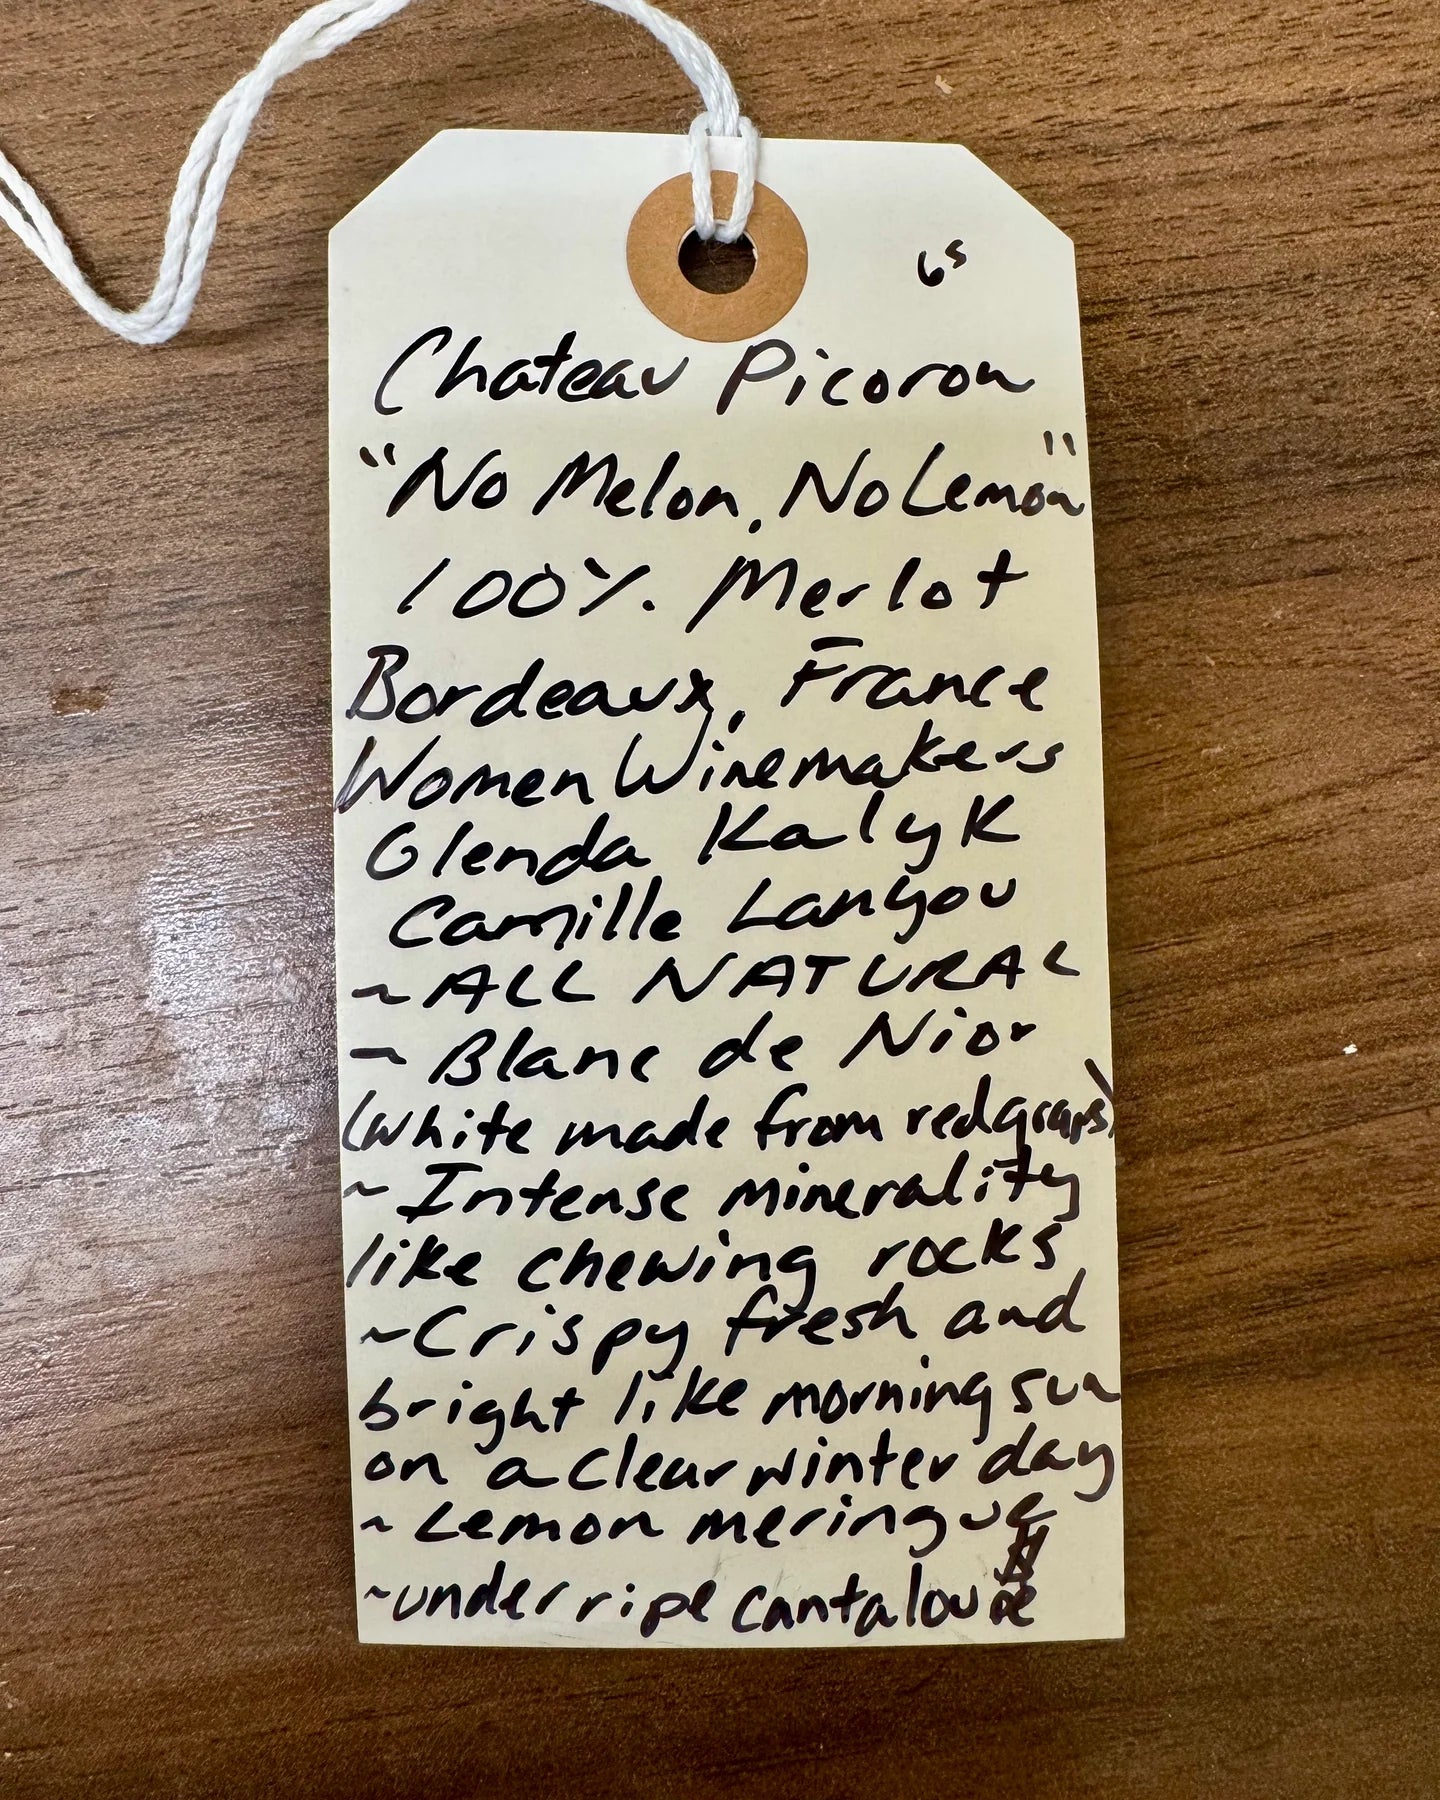 6s
Chateau Picoron
"No Melon, No Lemon"
100% Merlot
Bordeaux, France
Women Winemakers
Glenda Kalyk
Camille Langou
~ALL NATURAL
~ Blanc de Nior
(white made from red graps)
~ Intense minerality
like chewing rocks
~Crispy fresh and
bright like morning sun
on a clear winter day
~ Lemon meringue
~under ripe cantaloupe